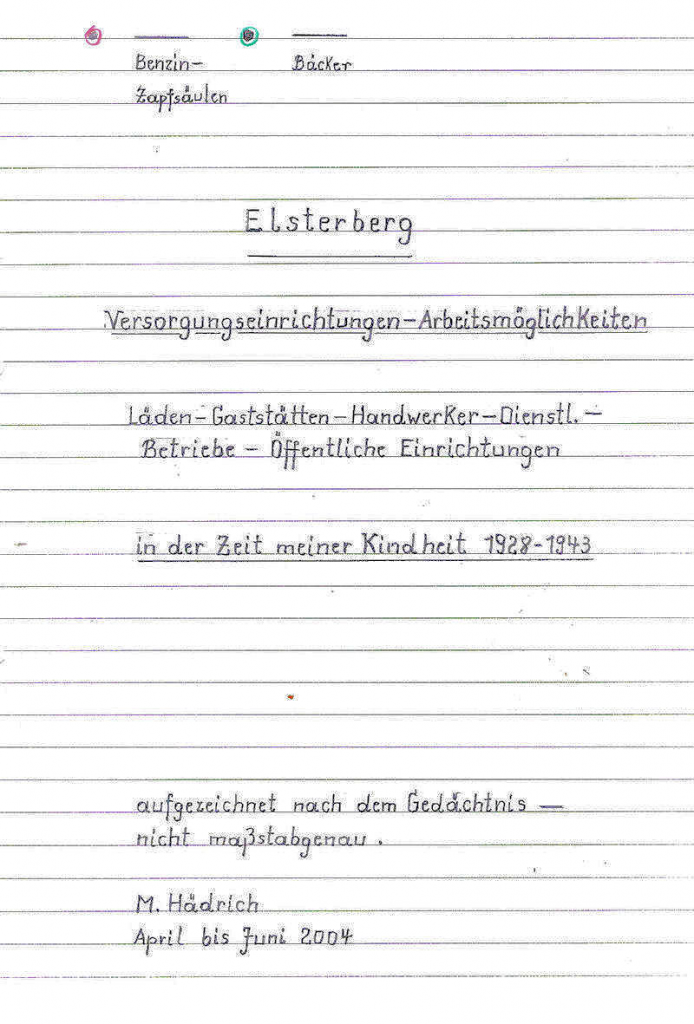 Benzin- Bäcker
Zapfsäulen
Elsterberg
Versorgungseinrichtungen-Arbeitsmöglichkeiten
Läden-Gaststätten-Handwerker-Dienstl.-
Betriebe - Öffentliche Einrichtungen
in der Zeit meiner Kindheit 1928-1943
aufgezeichnet nach dem Gedächtnis —
nicht maßstabgenau.
M. Hädrich
April bis Juni 2004